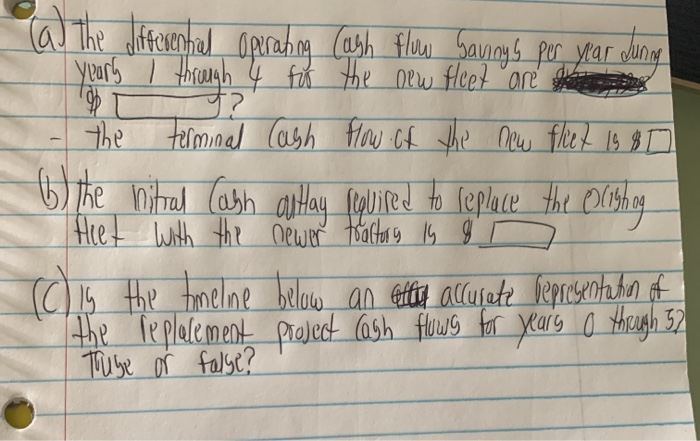 (a) The differential operating Cash flow Savings per year during
years 1 through 4 for the new fleet are
$ ?
- the terminal Cash flow of the new fleet is $
(b) the initial Cash outlay required to replace the existing
fleet with the newer tractors is $
(C) is the timeline below an accurate representation of
the replacement project Cash flows for years 0 through 5?
True or false?